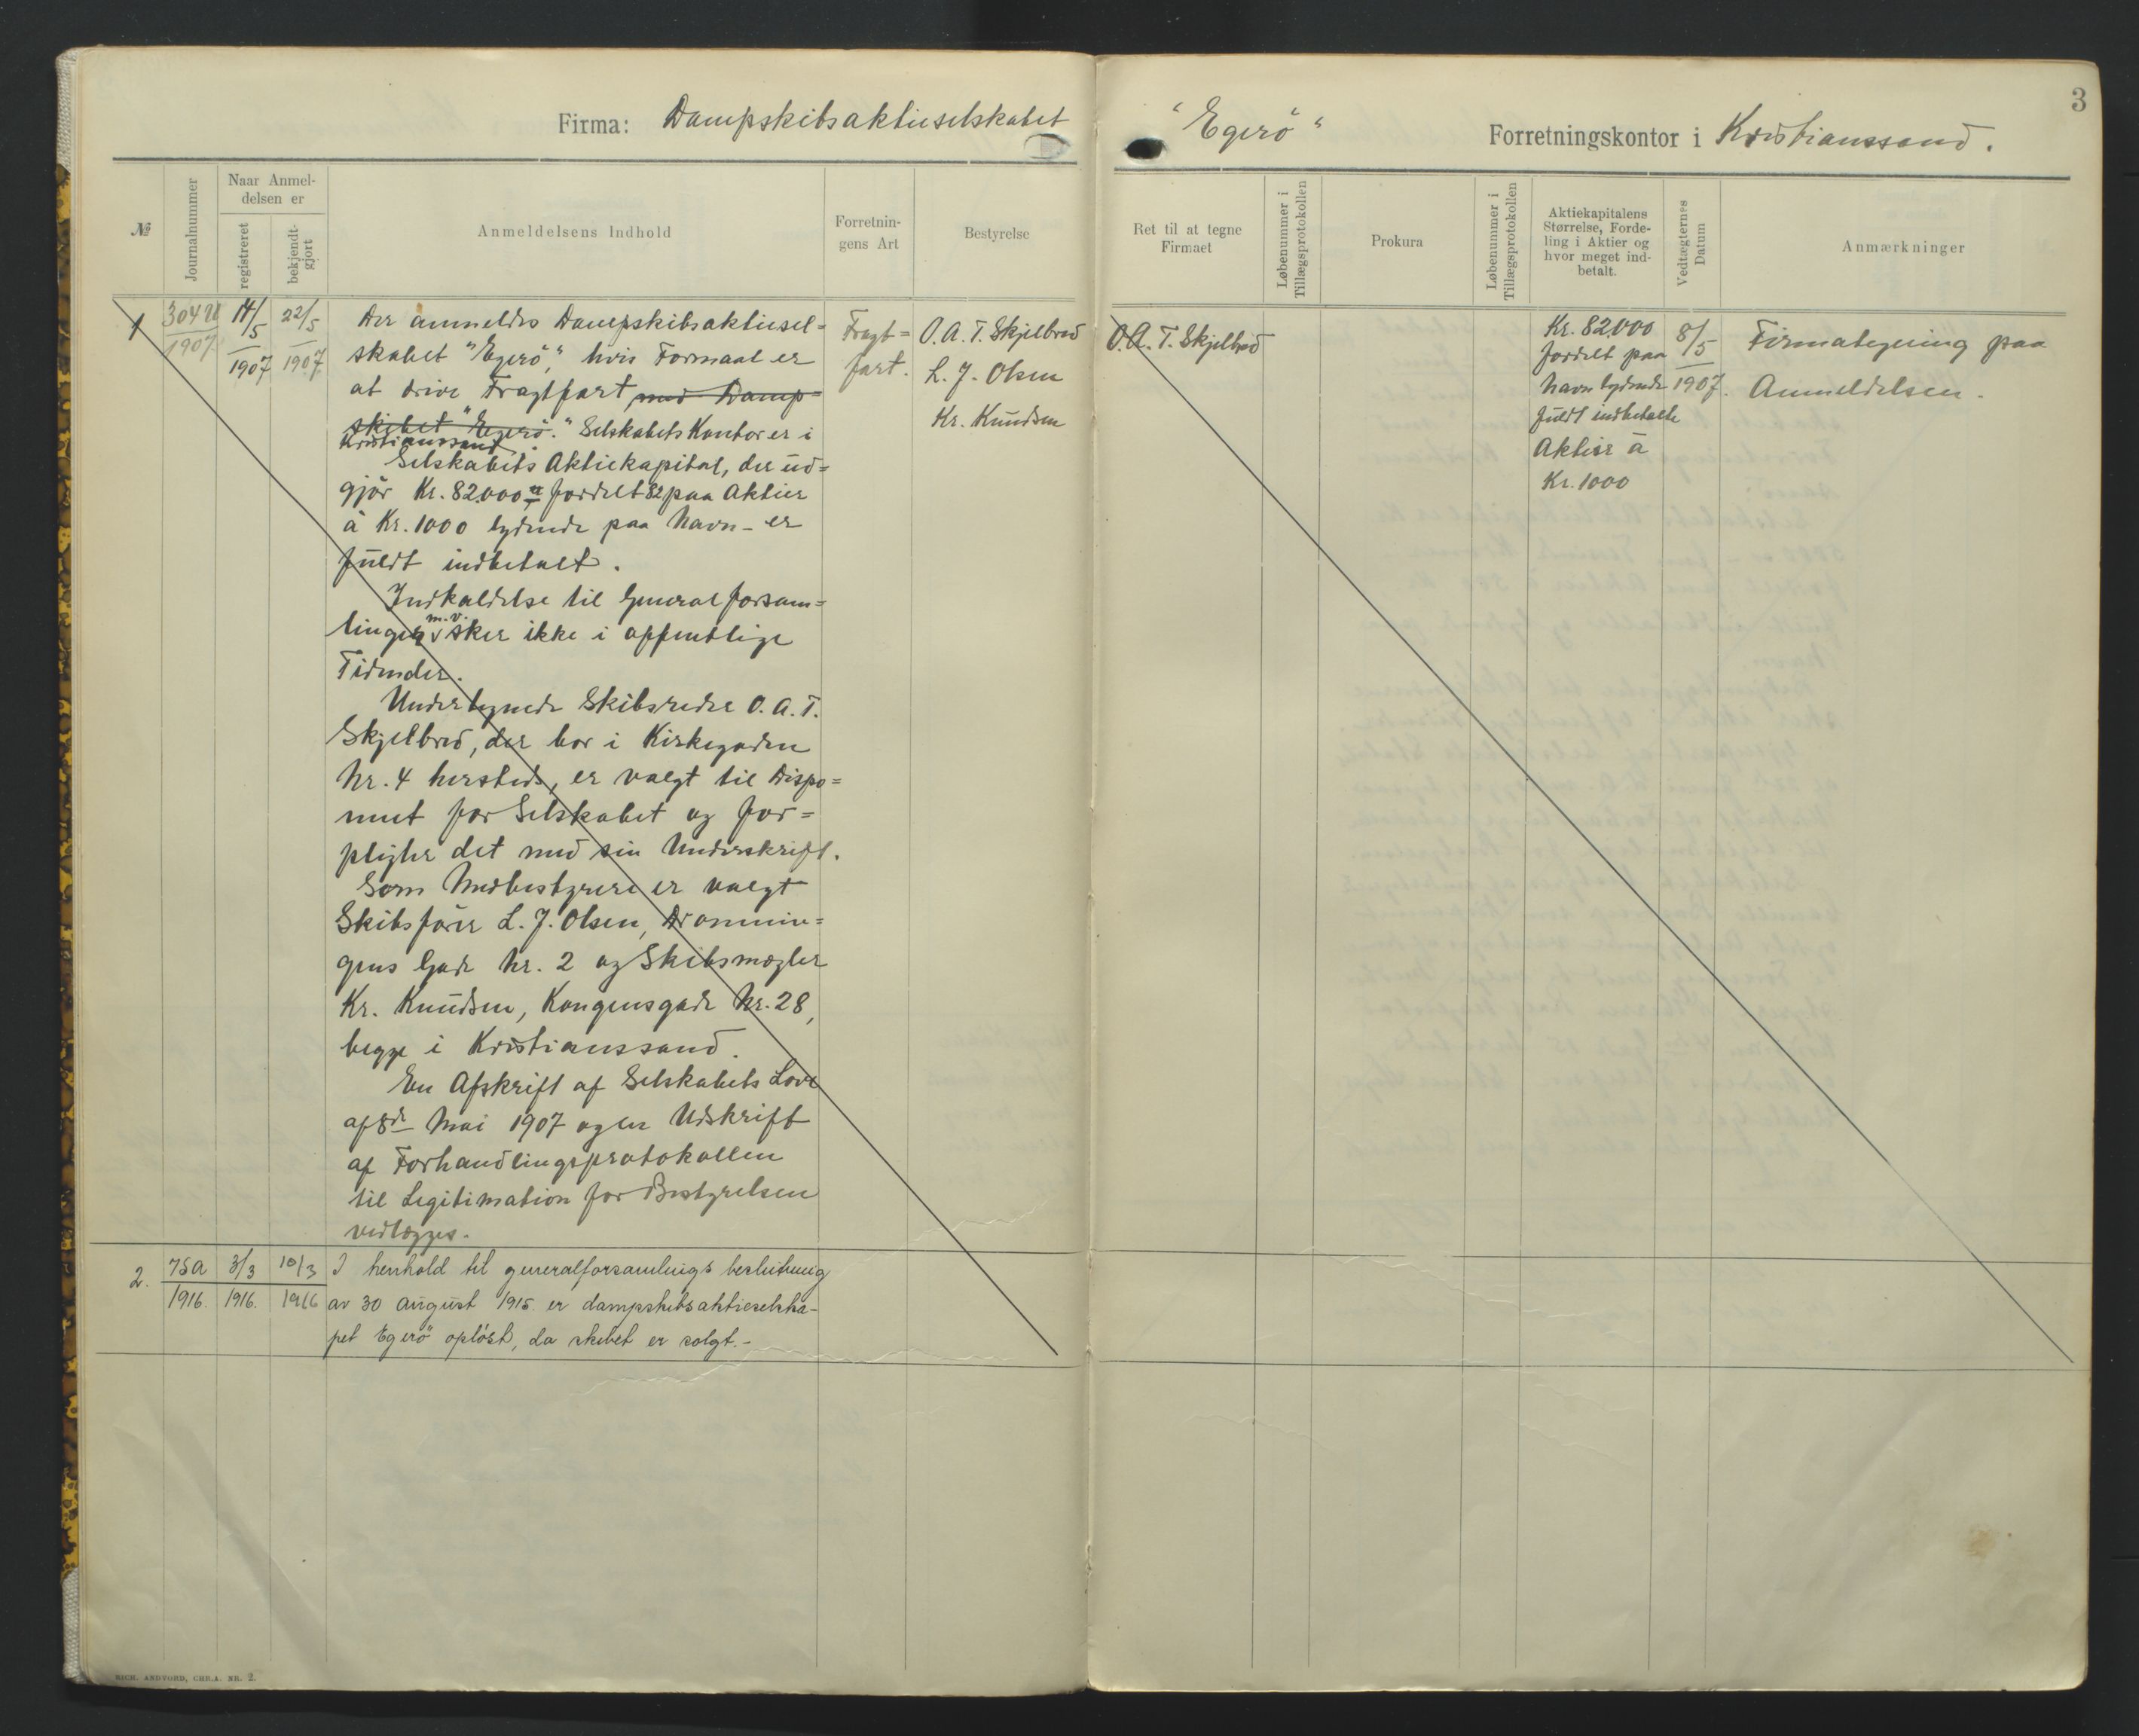 3
Firma: Dampskibsaktieselskabet "Egerö" Forretningskontor i Kristianssand.
№
Journalnummer
Naar Anmel-
delsen er
registreret
bekjendt-
gjort
Anmeldelsens Indhold
Forretnin-
gens Art
Bestyrelse
Ret til at tegne
Firmaet
Løbenummer i
Tillægsprotokollen
Prokura
Løbenummer i
Tillægsprotokollen
Aktiekapitalens
Størrelse, Forde-
ling i Aktier og
hvor meget ind-
betalt.
Vedtægternes
Datum
Anmærkninger
1
1907
14/5
1907
22/5
1907
Der anmeldes Dampskibsaktiesel=
skabet "Egerö", hvis Formaal er
at drive Fragtfart med Damp=
skibet "Egerö". Selskabets Kontor er i
Kristianssand.
Selskabets Aktiekapital, der ud=
gjör Kr. 82000 fordelt paa 82 Aktier
à Kr. 1000 lydende paa Navn - er
fuldt indbetalt.
Indkaldelse til Generalforsam=
linger m.v. sker ikke i offentlige
Tidender.
Undertegnede Skibsreder O. A. T.
Skjelbred, der bor i Kirkegaden
Nr. 4 hersteds, er valgt til Dispo=
nent for Selskabet og for=
pligter det med sin Underskrift.
Som Medbestyrere er valgt
Skibsförer L. J. Olsen, Dronnin=
gens Gade Nr. 2 og Skibsmægler
Kr. Knudsen, Kongensgade Nr. 28,
begge i Kristianssand.
En Afskrift af Selskabets Love
af 8de Mai 1907 og en Udskrift
af Forhandlingsprotokollen
til Legitimation for Bestyrelsen
vedlægges.
Fragt=
fart.
O. A. T. Skjelbred
L. J. Olsen
Kr. Knudsen
O. A. T. Skjelbred
Kr. 82000
fordelt paa
Navn lydende
fuldt indbetalte
Aktier à
Kr. 1000
8/5
1907.
Firmategning paa
Anmeldelsen.
2.
75a
1916.
3/3
1916.
10/3
1916
I henhold til generalforsamlings beslutning
av 30 august 1915 er dampskibsaktieselska-
pet "Egerö" oplöst, da skibet er solgt.-
RICH. ANDVORD, CHR.A. NR. 2.